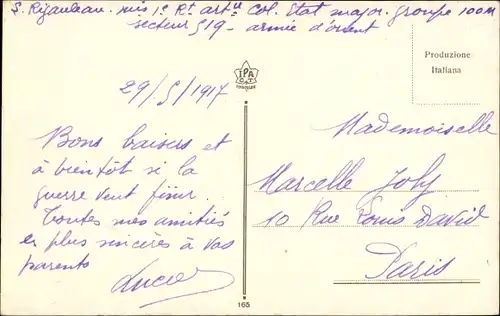 S. Rigauleau. mis 1e Rt artie Col. Etat major. groupe 100M
secteur 519 - armée d'orient
IPA
C.T.
Produzione
Italiana
29/5/1917
Bons baisers et
à bientôt si la
guerre veut finir.
Toutes mes amitiés
les plus sincères à vos
parents
Lucie
Mademoiselle
Marcelle Joly
10 Rue Louis David
Paris
165